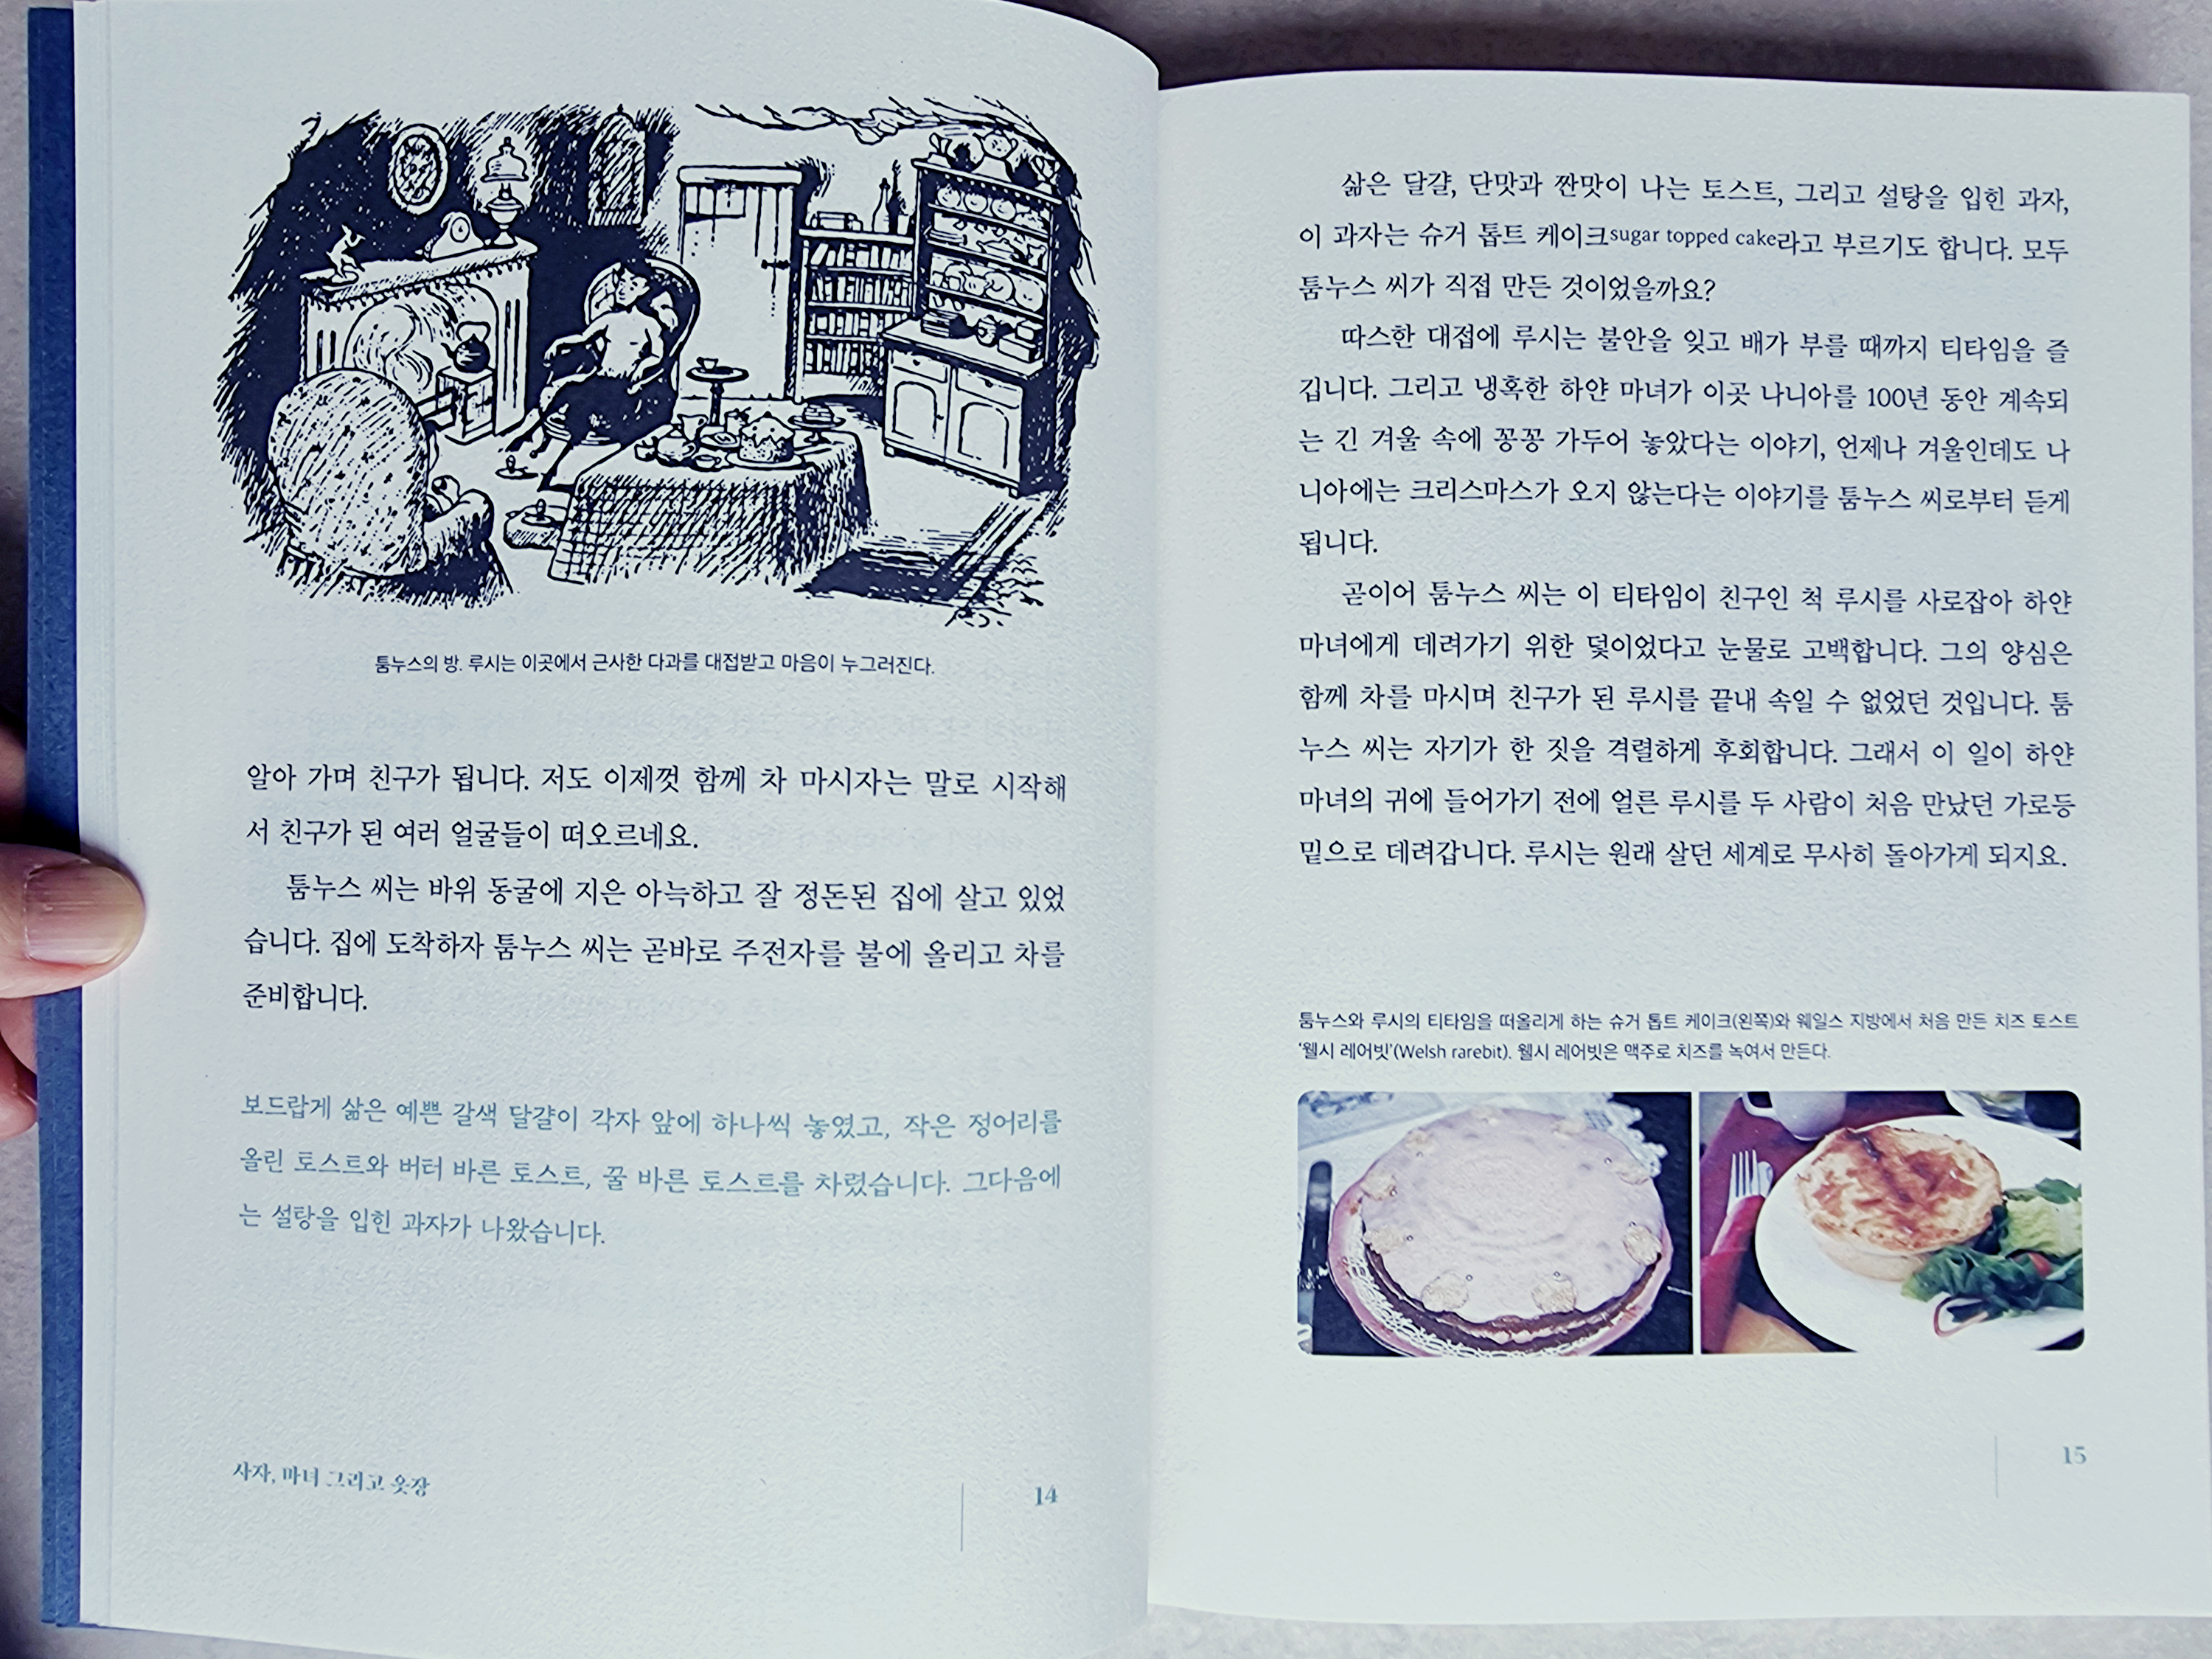 툼누스의 방. 루시는 이곳에서 근사한 다과를 대접받고 마음이 누그러진다.
알아 가며 친구가 됩니다. 저도 이제껏 함께 차 마시자는 말로 시작해
서 친구가 된 여러 얼굴들이 떠오르네요.
툼누스 씨는 바위 동굴에 지은 아늑하고 잘 정돈된 집에 살고 있었
습니다. 집에 도착하자 툼누스 씨는 곧바로 주전자를 불에 올리고 차를
준비합니다.
보드랍게 삶은 예쁜 갈색 달걀이 각자 앞에 하나씩 놓였고, 작은 정어리를
올린 토스트와 버터 바른 토스트, 꿀 바른 토스트를 차렸습니다. 그다음에
는 설탕을 입힌 과자가 나왔습니다.
사자, 마녀 그리고 옷장
14
삶은 달걀, 단맛과 짠맛이 나는 토스트, 그리고 설탕을 입힌 과자,
이 과자는 슈거 톱트 케이크sugar topped cake라고 부르기도 합니다. 모두
툼누스 씨가 직접 만든 것이었을까요?
따스한 대접에 루시는 불안을 잊고 배가 부를 때까지 티타임을 즐
깁니다. 그리고 냉혹한 하얀 마녀가 이곳 나니아를 100년 동안 계속되
는 긴 겨울 속에 꽁꽁 가두어 놓았다는 이야기, 언제나 겨울인데도 나
니아에는 크리스마스가 오지 않는다는 이야기를 툼누스 씨로부터 듣게
됩니다.
곧이어 툼누스 씨는 이 티타임이 친구인 척 루시를 사로잡아 하얀
마녀에게 데려가기 위한 덫이었다고 눈물로 고백합니다. 그의 양심은
함께 차를 마시며 친구가 된 루시를 끝내 속일 수 없었던 것입니다. 툼
누스 씨는 자기가 한 짓을 격렬하게 후회합니다. 그래서 이 일이 하얀
마녀의 귀에 들어가기 전에 얼른 루시를 두 사람이 처음 만났던 가로등
밑으로 데려갑니다. 루시는 원래 살던 세계로 무사히 돌아가게 되지요.
툼누스와 루시의 티타임을 떠올리게 하는 슈거 톱트 케이크(왼쪽)와 웨일스 지방에서 처음 만든 치즈 토스트
‘웰시 레어빗’(Welsh rarebit). 웰시 레어빗은 맥주로 치즈를 녹여서 만든다.
15